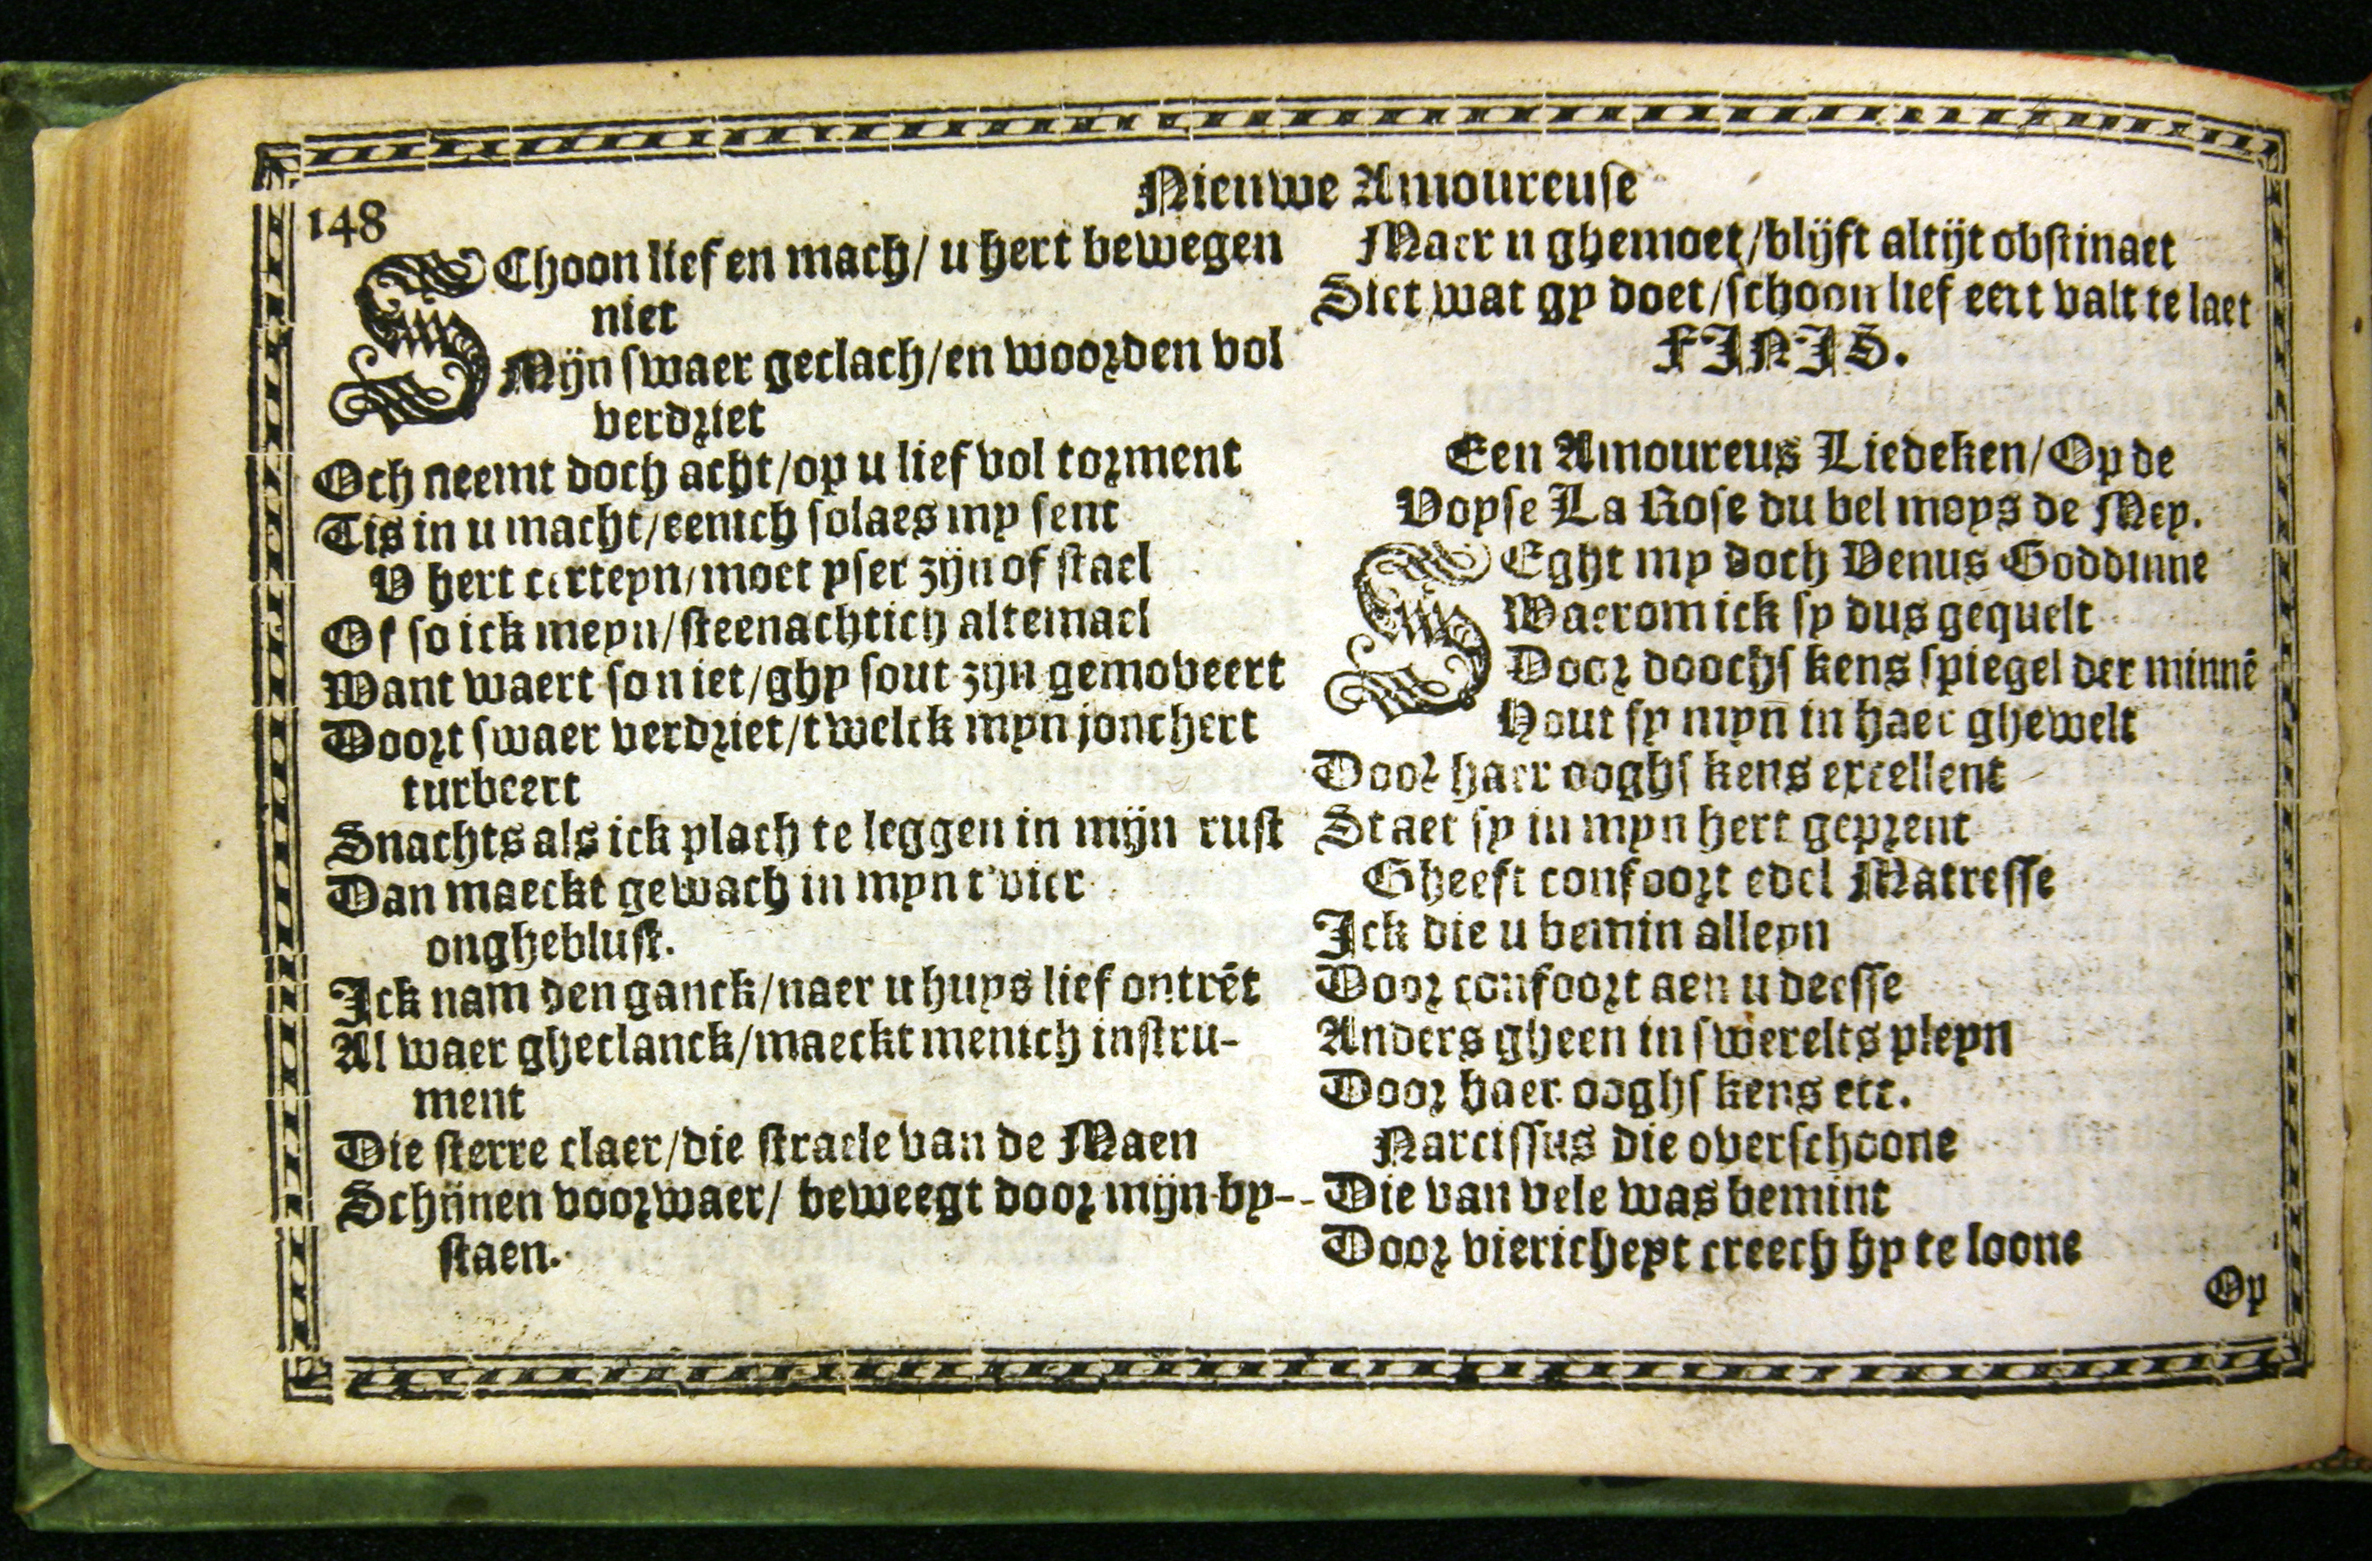 148
Nieuwe Amoureuse
SChoon lief en mach/ u hert bewegen
niet
Mijn swaer geclach/en woorden vol
verdriet
Och neemt doch acht/op u lief vol torment
Tis in u macht/eenich solaes my sent
V hert certeyn/moet yser zijn of stael
Of so ick meyn/steenachtich altemael
Want waert so niet/ghy sout zijn gemoveert
Doort swaer verdriet/twelck myn jonchert
turbeert
Snachts als ick plach te leggen in mijn rust
Dan maeckt gewach in myn t'vier
ongheblust.
Ick nam den ganck/naer u huys lief ontrēt
Al waer gheclanck/maeckt menich instru-
ment
Die sterre claer/die straele van de Maen
Schijnen voorwaer/ beweegt door mijn by-
staen.
Maer u ghemoet/blijft altijt obstinaet
Siet wat gy doet/schoon lief eert valt te laet
FINIS.
Een Amoureus Liedeken/Op de
Voyse La Rose du bel moys de Mey.
SEght my doch Venus Goddinne
Waerom ick sy dus gequelt
Door doochs kens spiegel der minnē
Hout sy myn in haer ghewelt
Door haer ooghs kens excellent
Staet sy in myn hert geprent
Gheeft confoort edel Matresse
Ick die u bemin alleyn
Door confoort aen u deesse
Anders gheen in swerelts pleyn
Door haer ooghs kens etc.
Narcissus die overschoone
Die van vele was bemint
Door vierichept creech hy te loone
Op